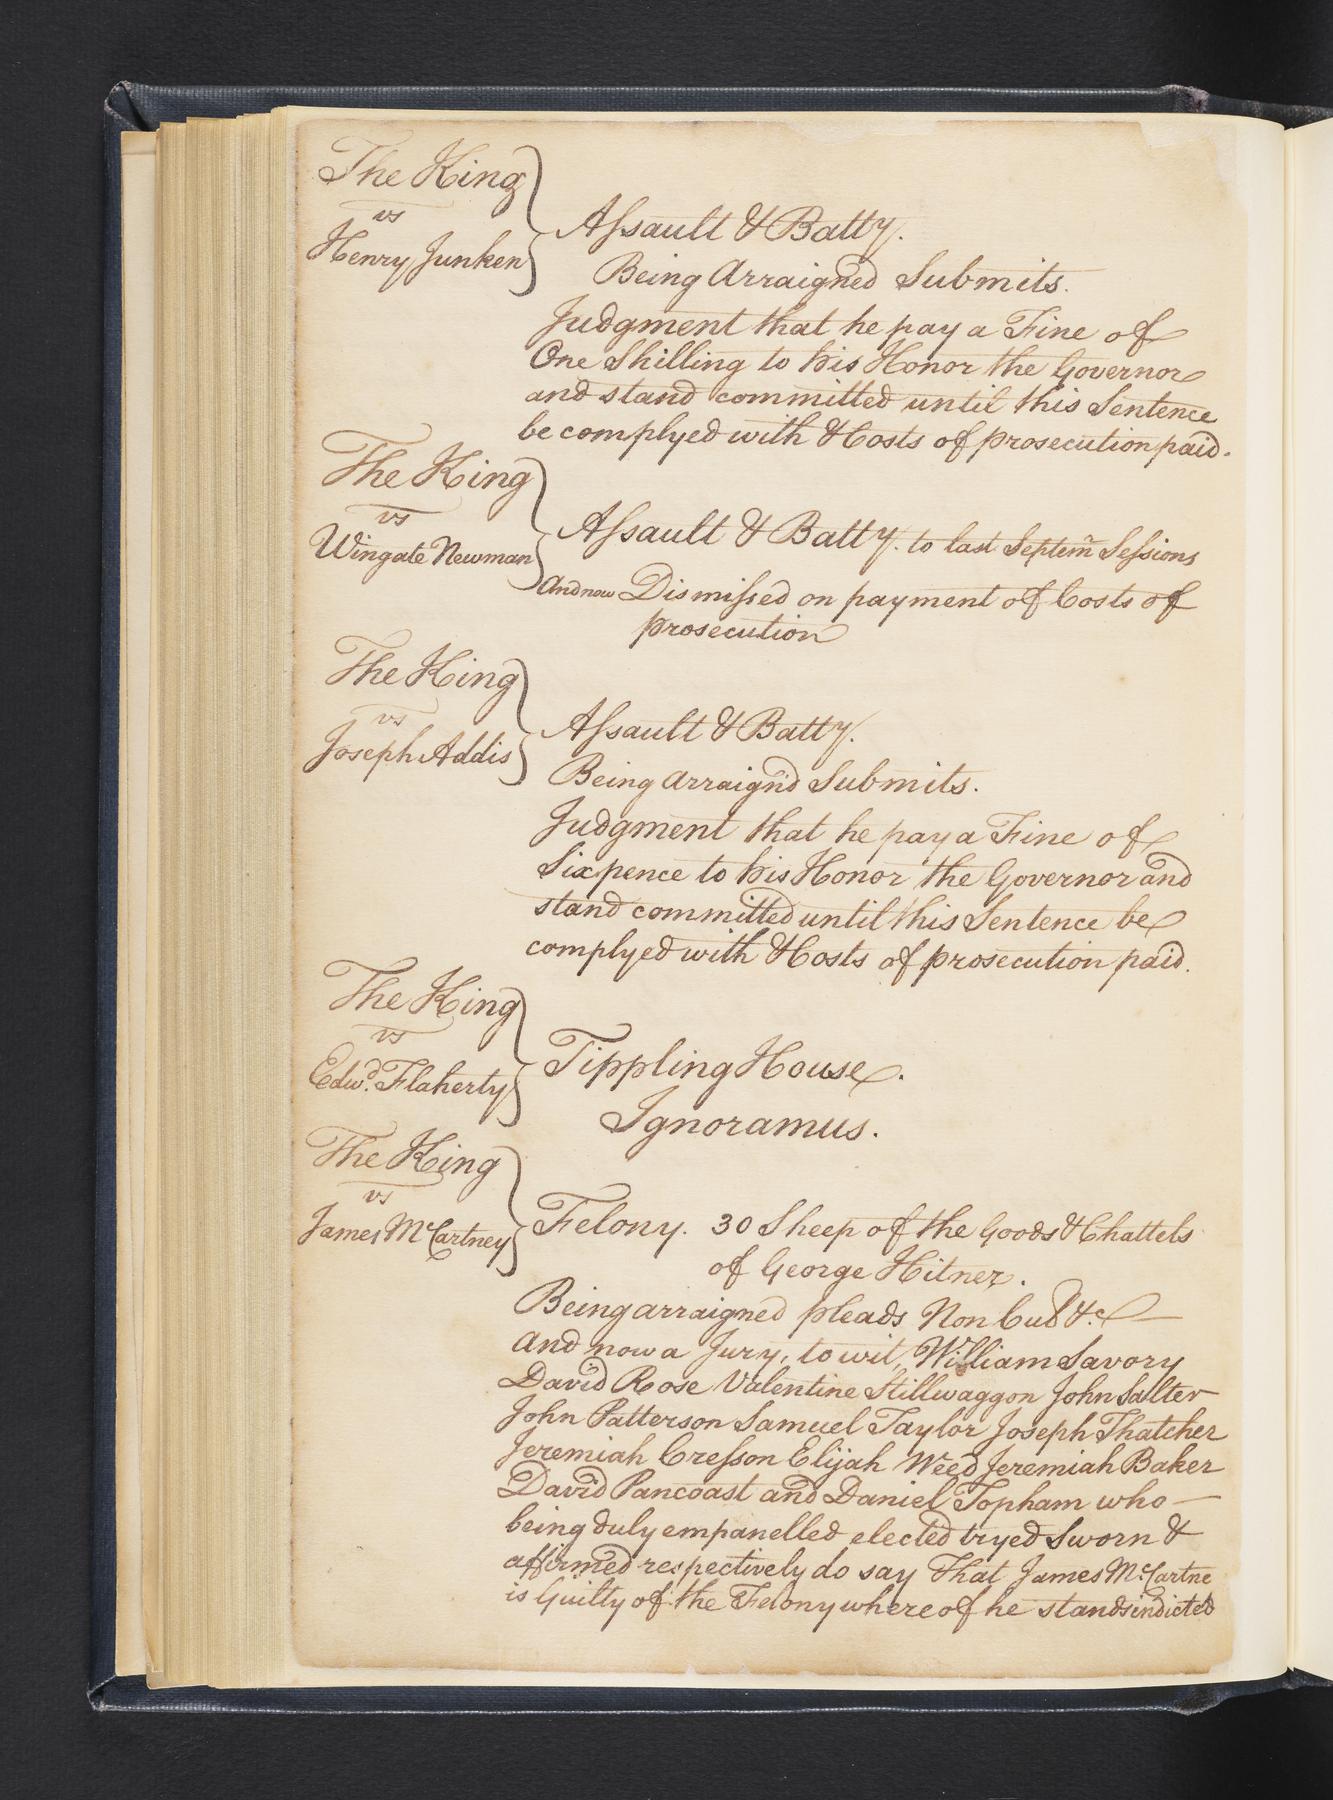 The King
vs
Henry Junken
Aſsault & Batty.
Being Arraigned Submits.
Judgment that he pay a Fine of
One Shilling to his Honor the Governor
and stand committed until this Sentence
be complyed with & Costs of prosecution paid.
The King
vs
Wingate Newman
Aſsault & Batty. to last Septem Seſsions
And now Dismiſsed on payment of Costs of
prosecution
The King
vs
Joseph Addis
Aſsault & Batty.
Being arraign'd Submits.
Judgment that he pay a Fine of
Sixpence to his Honor the Governor and
stand committed until this Sentence be
complyed with & Costs of prosecution paid.
The King
vs
Edwd. Flaherty
Tippling House.
Ignoramus.
The King
vs
James McCartney
Felony. 30 Sheep of the Goods & Chattels
of George Hitner.
Being arraigned pleads Non Cul &c
and now a Jury, to wit, William Savory
David Rose Valentine Stillwaggon John Salter
John Patterson Samuel Taylor Joseph Thatcher
Jeremiah Creſson Elijah Weed Jeremiah Baker
David Pancoast and Daniel Topham who
being duly empanelled elected tryed Sworn &
affirmed respectively do say That James McCartne
is Guilty of the Felony whereof he stands indicted